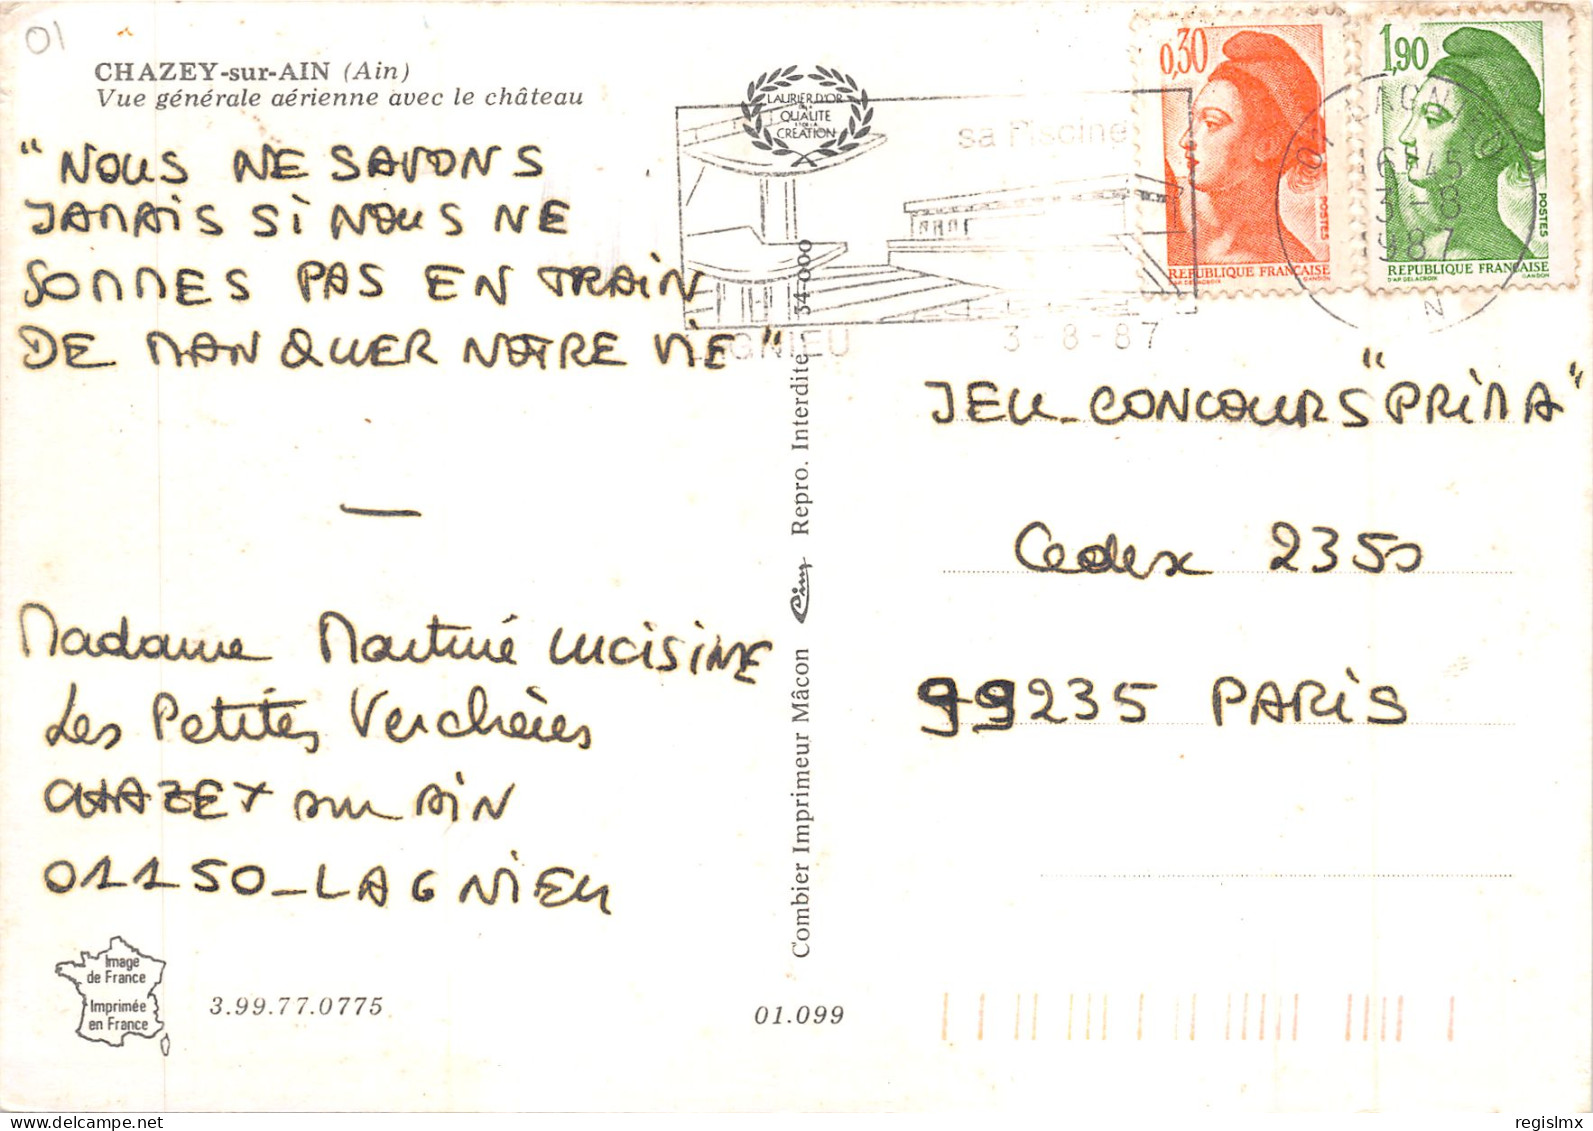 01
CHAZEY-sur-AIN (Ain)
Vue générale aérienne avec le château
"NOUS NE SAVONS
JAMAIS SI NOUS NE
SOMMES PAS EN TRAIN
DE MANQUER NOTRE VIE"
Madame Martine
Les Petites Verchères
CHAZEY sur AIN
01150_LAGNIEU
Image
de France
Imprimée
en France
3.99.77.0775
01.099
Combier Imprimeur Mâcon Repro. Interdite 34-000
LAURIER D'OR
DE LA
QUALITE
ET DE LA
CREATION
sa Piscine
LAGNIEU
3-8-87
0,30
POSTES
REPUBLIQUE FRANÇAISE
D'AP. DELACROIX GANDON
1,90
POSTES
REPUBLIQUE FRANÇAISE
D'AP. DELACROIX GANDON
01 LAGNIEU
16H45
3-8
1987
JEU-CONCOURS "PRIMA"
Cedex 2350
99235 PARIS
regislmx